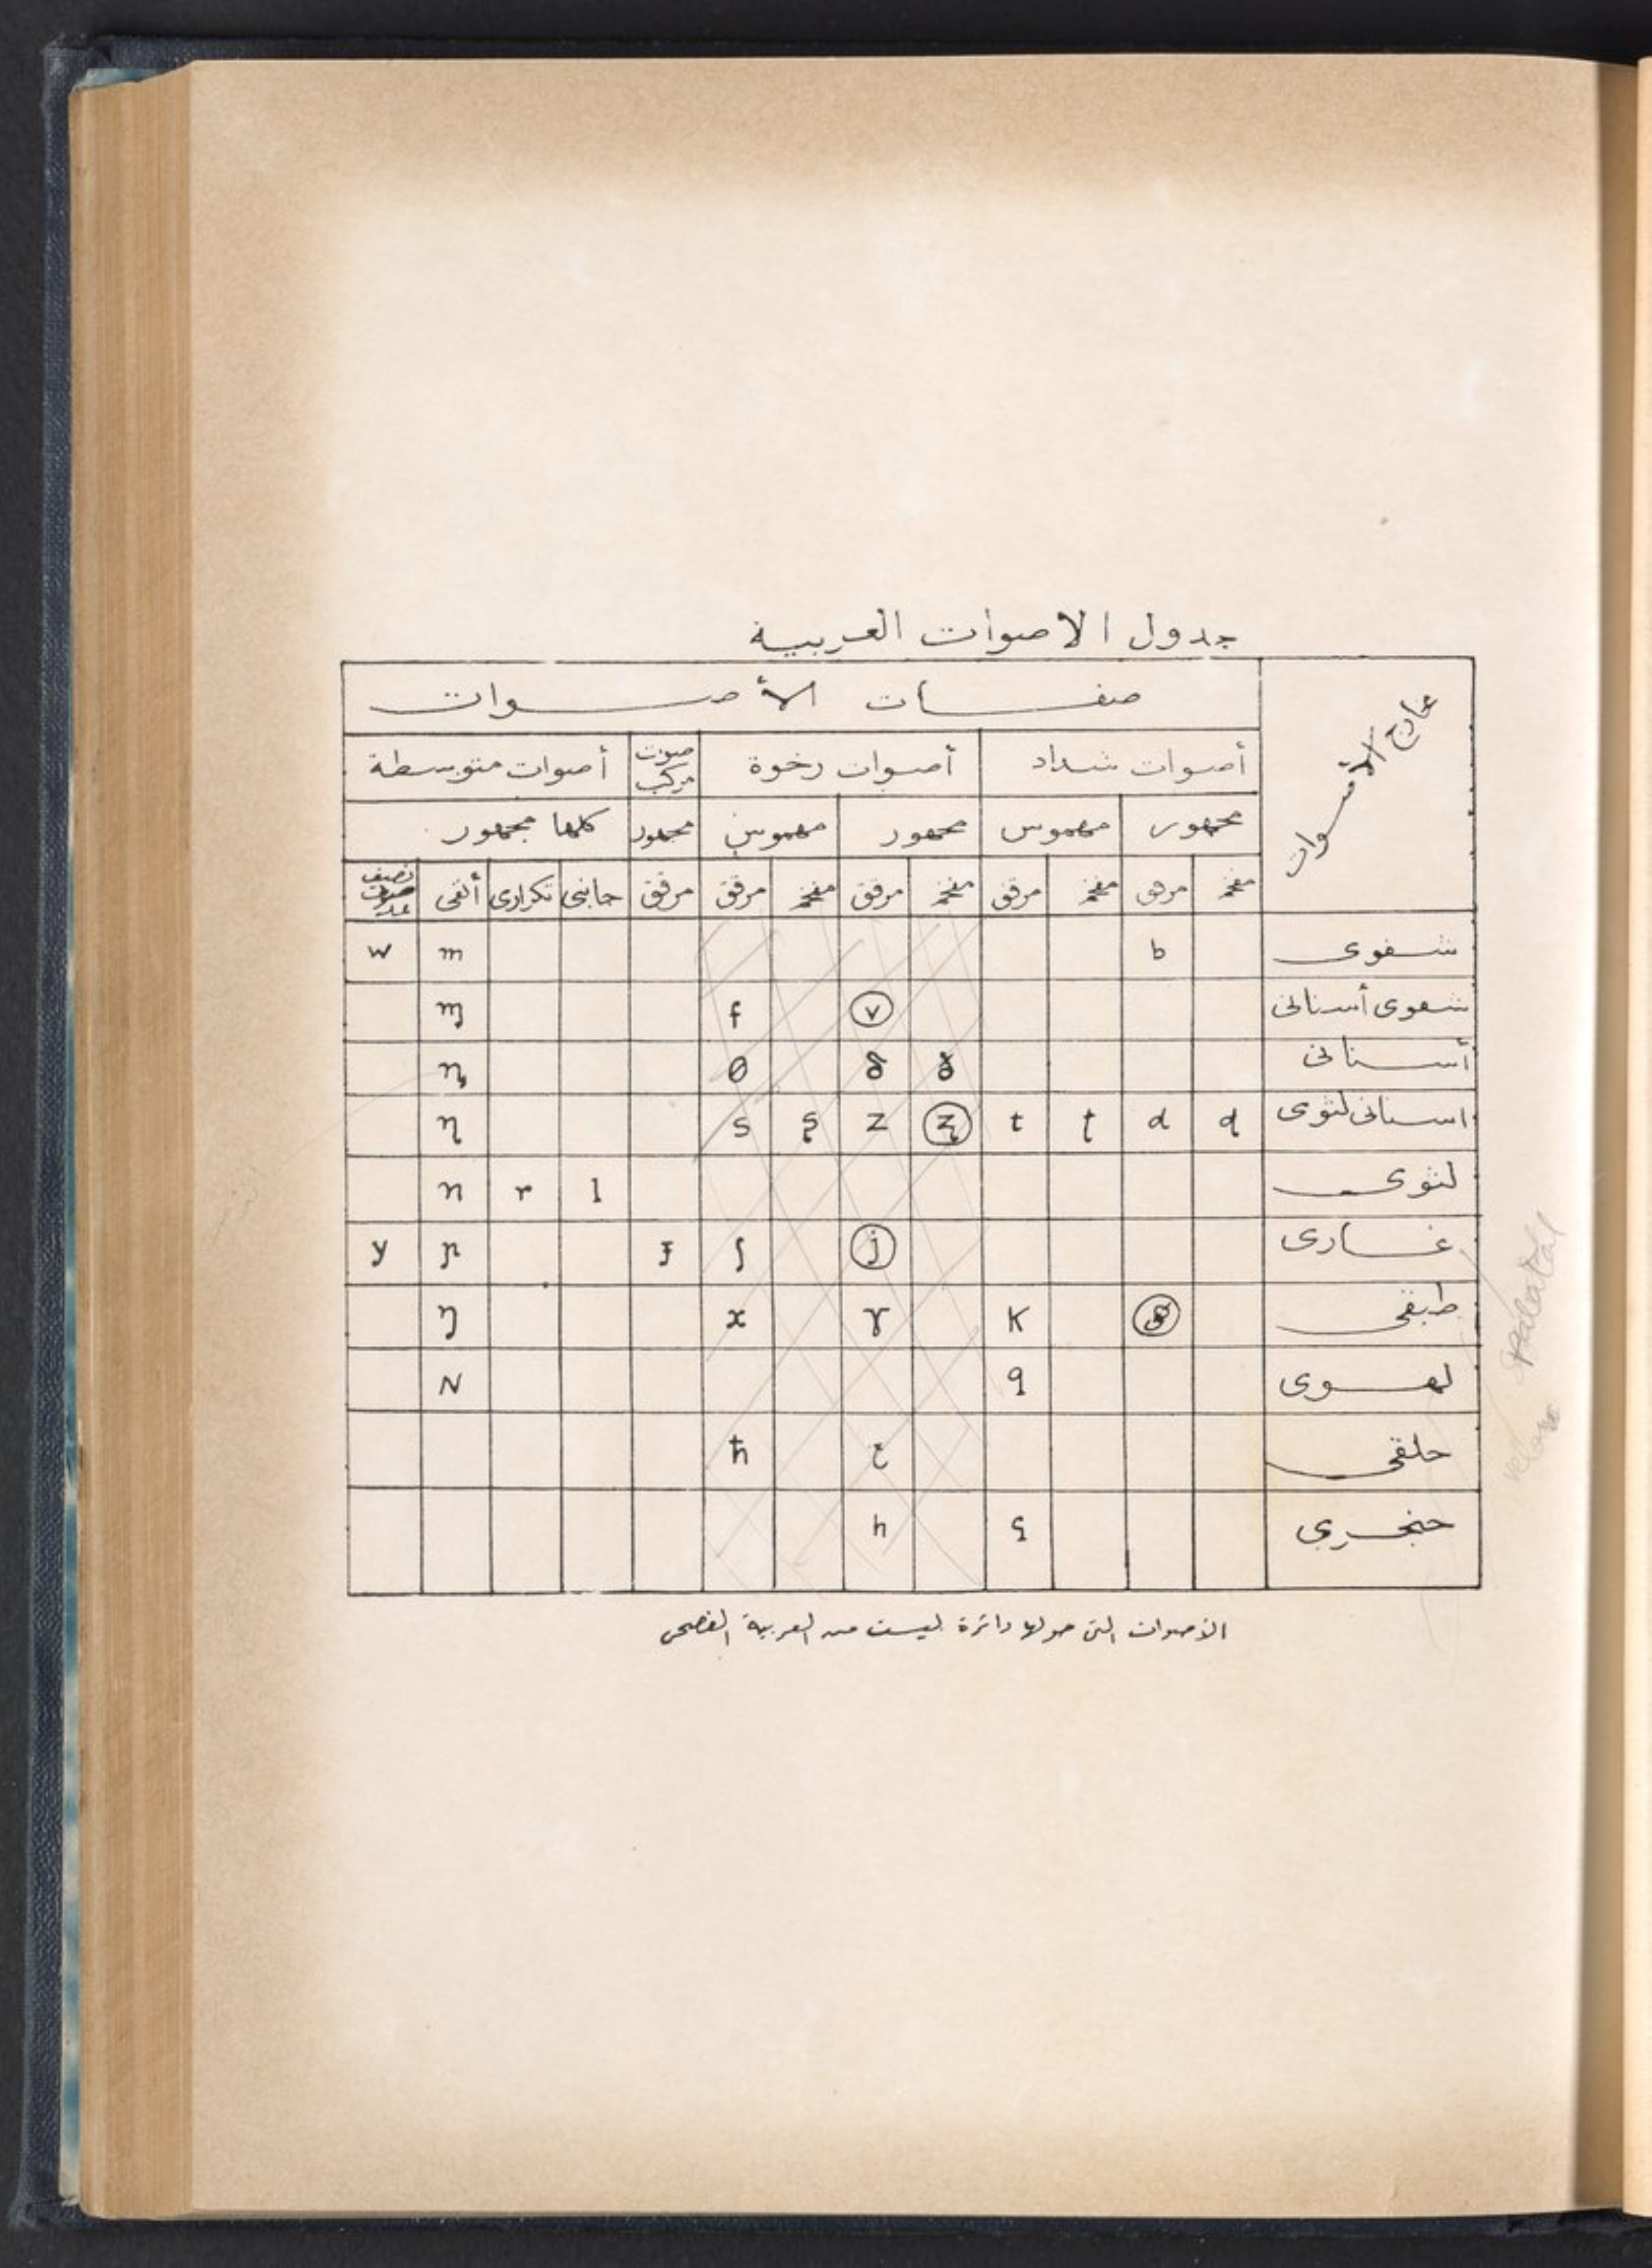 جدول الاصوات العربية
مخارج الأصوات
صفات الأصوات
أصوات شداد أصوات رخوة صوت مركب أصوات متوسطة
مجهور مهموس مجهور مهموس مجهور كلها مجهور
مفخم مرقق مفخم مرقق مفخم مرقق مفخم مرقق مرقق جانبى تكرارى أنفى نصيف
شفوى b m w
شفوى أسنانى v f ɱ
أسنانى θ
اسنانى لثوى d t z s
لثوى l r n
غارى j ʃ ɟ ɲ y
طبقى k ɣ x ŋ
لهوى q N
حلقى ħ
حنجرى h
الأصوات التى حولها دائرة ليست من العربية الفصحى
palatal
velar